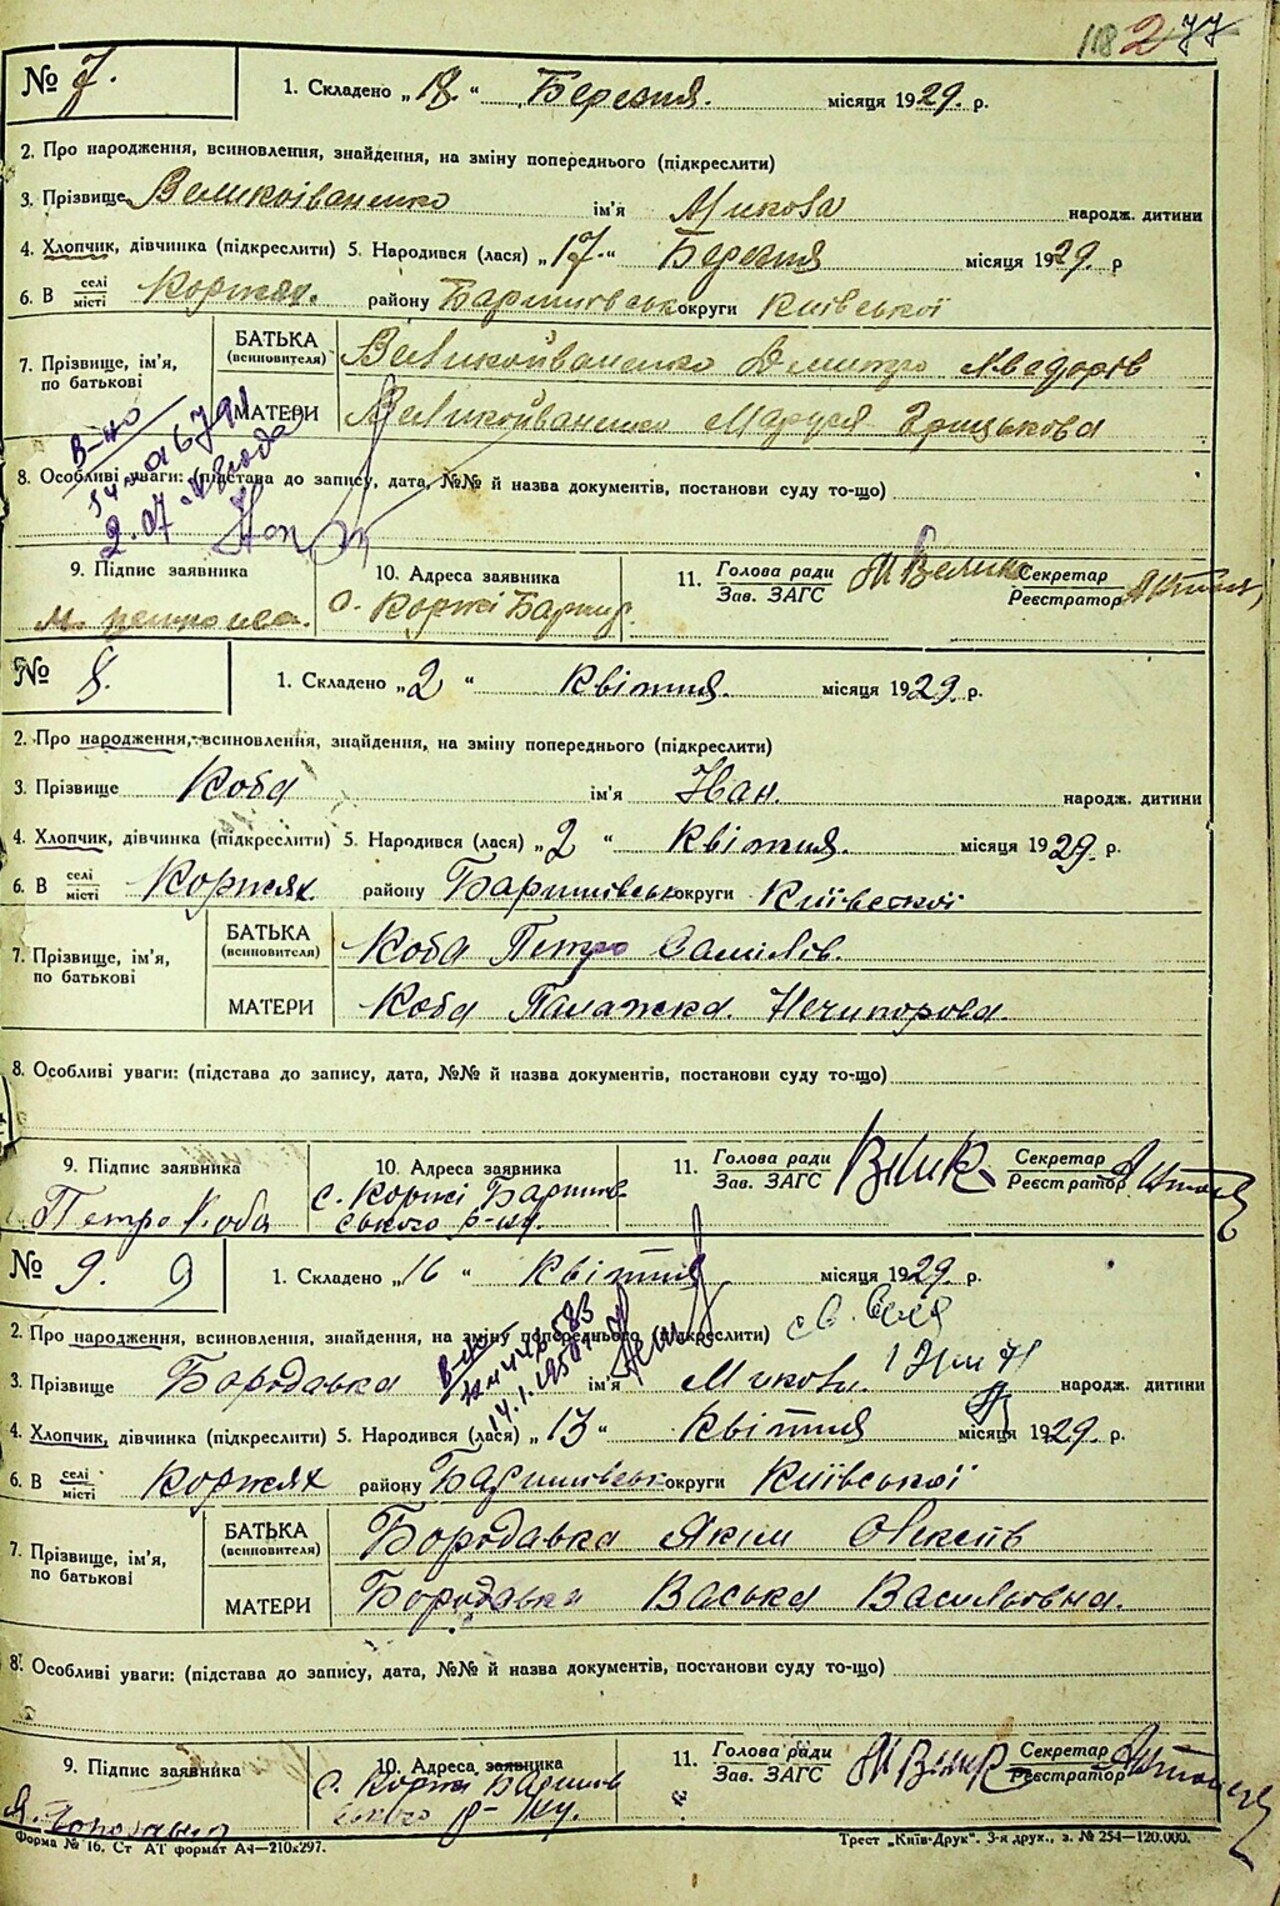 118 277
№ 7. 1. Складено „18.“ Березня. місяця 1929. р.
2. Про народження, всиновлення, знайдення, на зміну попереднього (підкреслити)
3. Прізвище Великоіваненко ім'я Микола народж. дитини
4. Хлопчик, дівчинка (підкреслити) 5. Народився (лася) „17.“ Березня місяця 1929. р
6. В селі місті Коржях. району Баришівськ округи Київської
7. Прізвище, ім'я, по батькові БАТЬКА (всиновителя) Великойваненко Дмитро Хведорів
МАТЕРИ Великойваненко Маруся Грицькова
В-но
8. Особливі уваги: (підстава до запису, дата, №№ й назва документів, постанови суду то-що)
9. Підпис заявника 10. Адреса заявника 11. Голова ради Зав. ЗАГС Секретар Реєстратор
с. Коржі Бариш.
№ 8. 1. Складено „2“ Квітня. місяця 1929. р.
2. Про народження, всиновлення, знайдення, на зміну попереднього (підкреслити)
3. Прізвище Коба ім'я Іван. народж. дитини
4. Хлопчик, дівчинка (підкреслити) 5. Народився (лася) „2“ Квітня. місяця 1929. р.
6. В селі місті Коржях району Баришівськ округи Київської
7. Прізвище, ім'я, по батькові БАТЬКА (всиновителя) Коба Петро Самілів.
МАТЕРИ Коба Палажка. Нечипорова.
8. Особливі уваги: (підстава до запису, дата, №№ й назва документів, постанови суду то-що)
9. Підпис заявника 10. Адреса заявника 11. Голова ради Зав. ЗАГС Велик Секретар Реєстратор
Петро Коба с. Коржі Баришів-
ського р-ну.
№ 9. 9 1. Складено „16“ Квітня місяця 1929. р.
2. Про народження, всиновлення, знайдення, на зміну попереднього (підкреслити)
3. Прізвище Бородавка ім'я Микола. народж. дитини
4. Хлопчик, дівчинка (підкреслити) 5. Народився (лася) „13“ Квітня місяця 1929. р.
6. В селі місті Коржях району Баришівськ округи Київської
7. Прізвище, ім'я, по батькові БАТЬКА (всиновителя) Бородавка Яким Олексіїв
МАТЕРИ Бородавка Васька Васильовна.
8. Особливі уваги: (підстава до запису, дата, №№ й назва документів, постанови суду то-що)
9. Підпис заявника 10. Адреса заявника 11. Голова ради Зав. ЗАГС Секретар Реєстратор
с. Коржі Баришів
ського р-ну.
Форма № 16. Ст АТ формат А4—210x297. Трест „Київ-Друк“. 3-я друк., з. № 254—120.000.